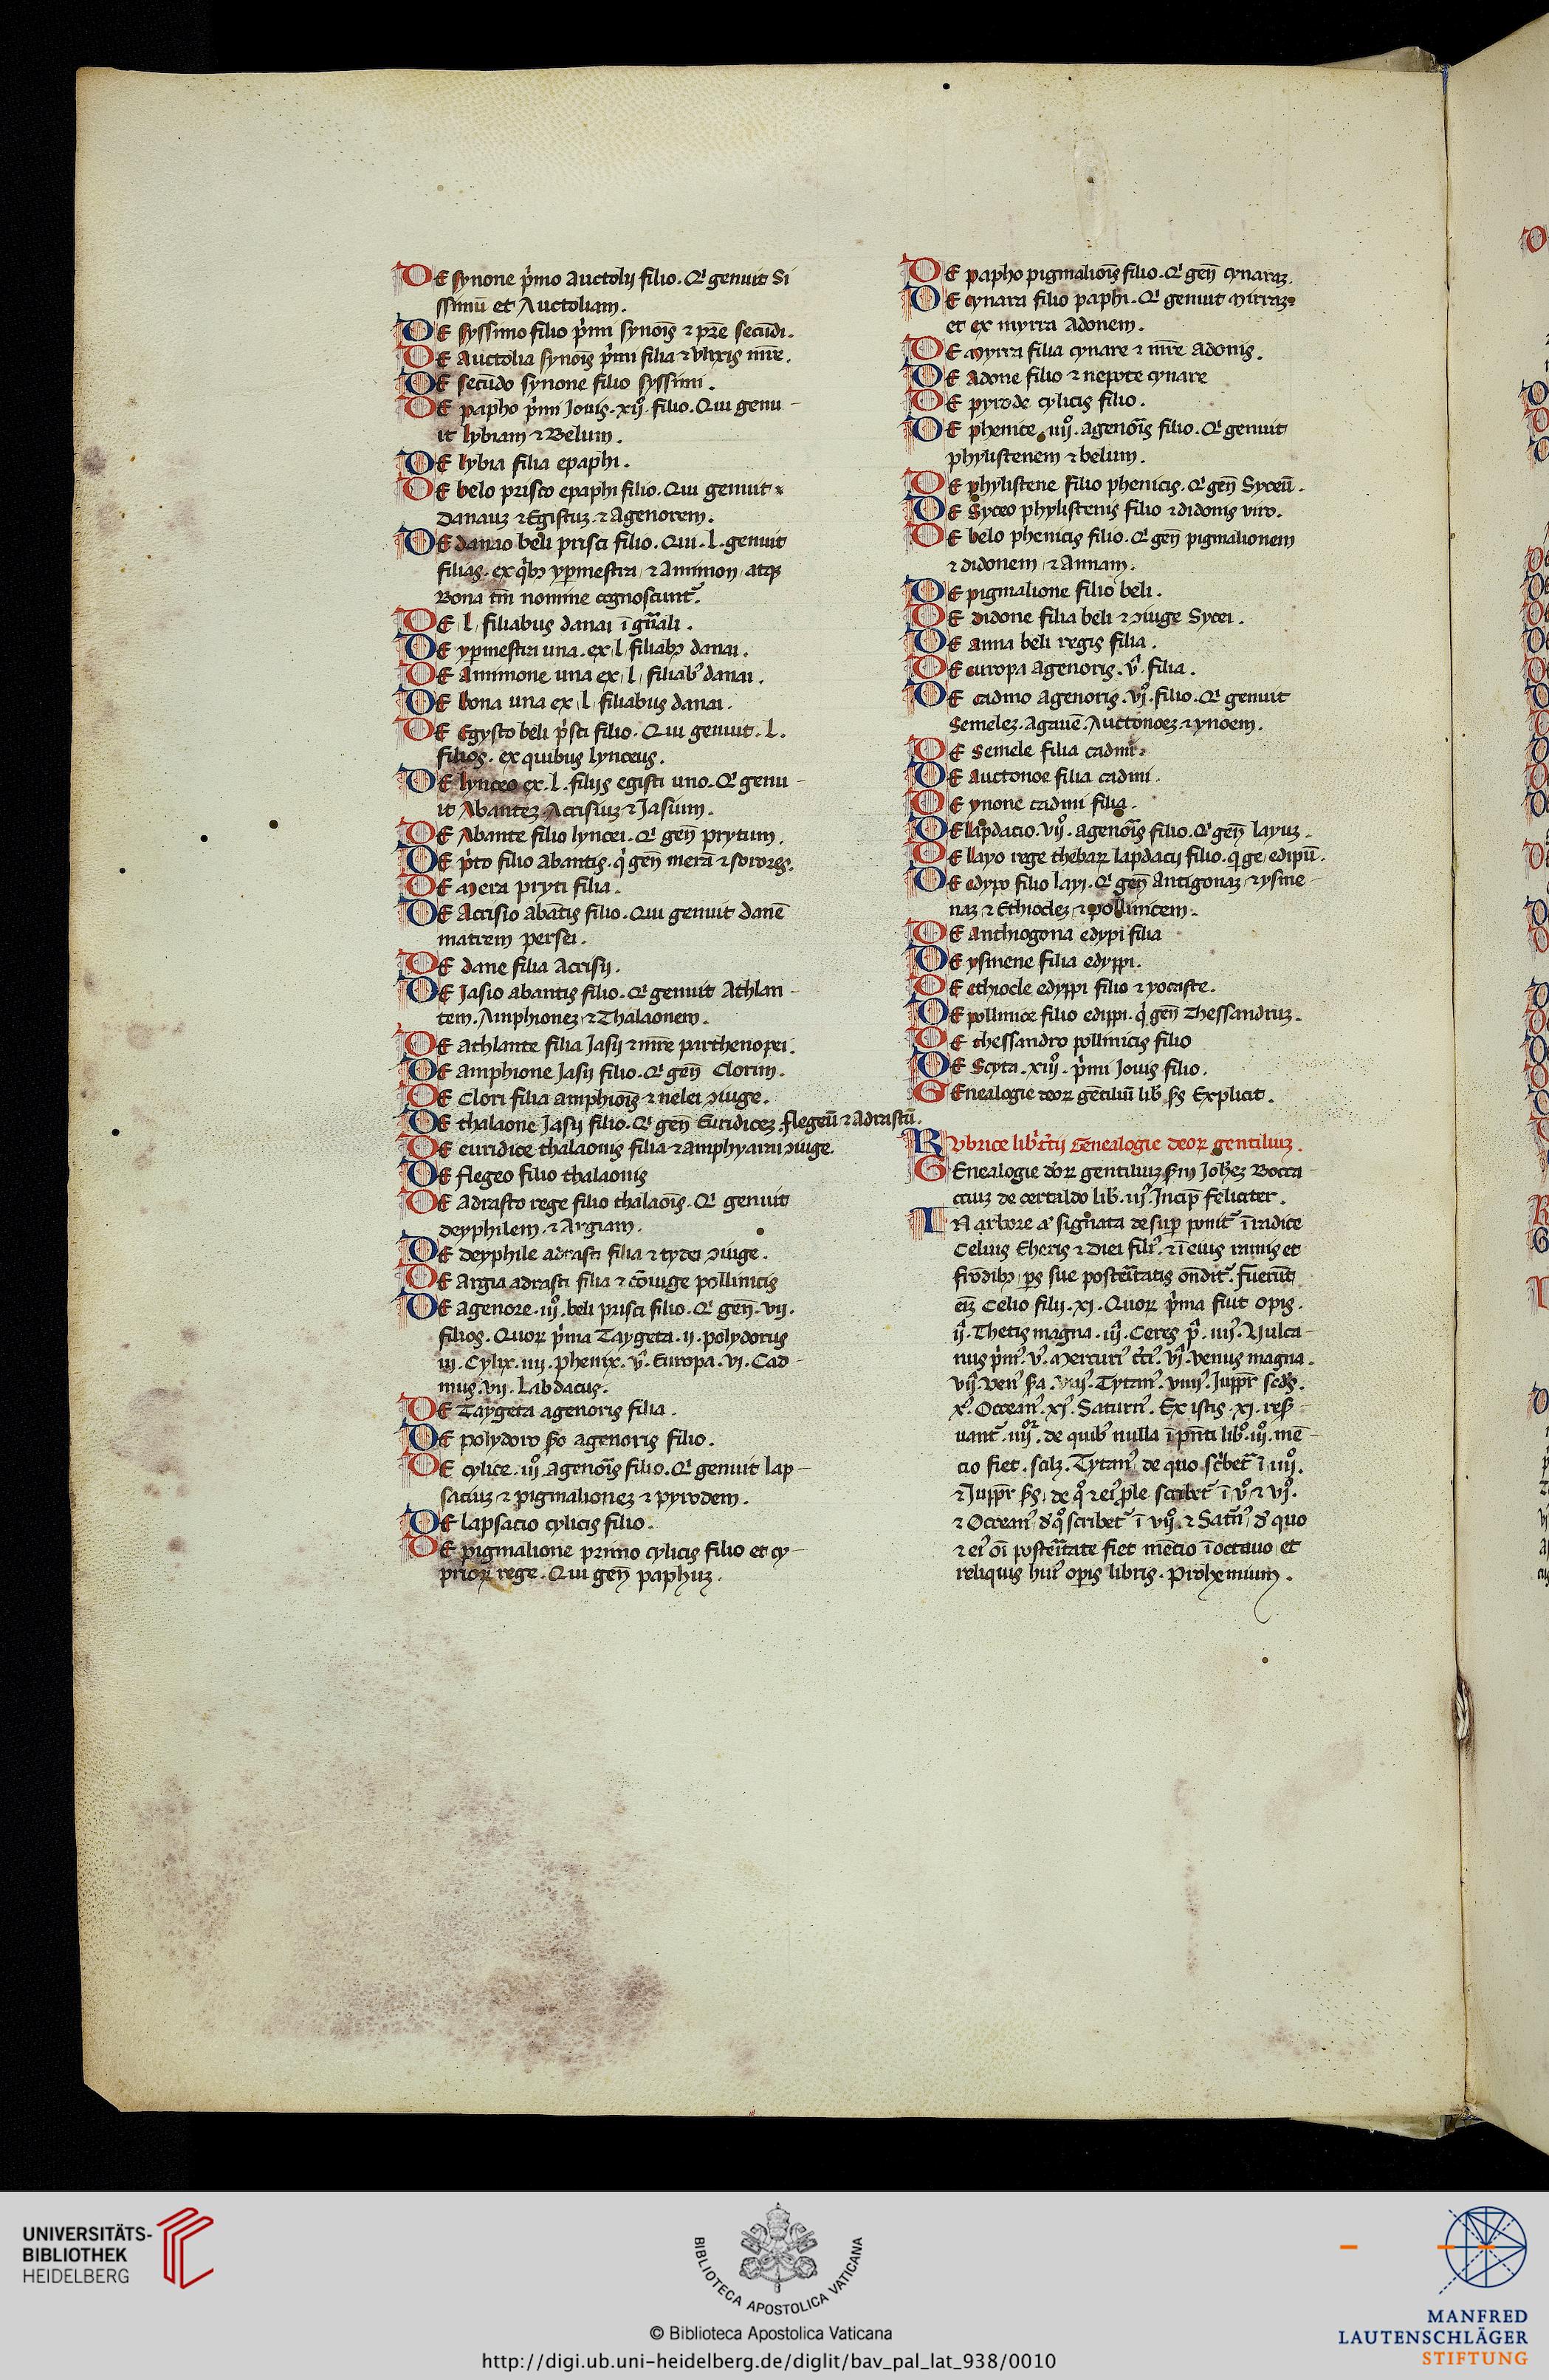 DE synone p̍mo auctolij filio. Q̍ genuit Si
ssimū et Auctoliam.
DE syssimo filio p̍mi synoīs ⁊ pr̄e secūdi.
DE Auctolia synoīs p̍mi filia ⁊ vlixis mr̄e.
DE secūdo synone filio syssimi.
DE papho p̍mi Jouis .xijº. filio. Qui genu-
it lybiam ⁊ Belum.
DE lybia filia epaphi.
DE belo prisco epaphi filio. Qui genuit
Danauz ⁊ Egistuz ⁊ Agenorem.
DE danao beli prisci filio. Qui .l. genuit
filias. ex q̍bꝫ ypmestra ⁊ Amimon atqꝫ
Bona tm̄ nomine cognoscunt̉.
DE .l. filiabus danai ī gn̄ali.
DE ypmestra una. ex .l. filiabꝫ danai.
DE Amimone una ex .l. filiab̉ danai.
DE bona una ex .l. filiabus danai.
DE Egysto beli p̍sci filio. Qui genuit .l.
filios. ex quibus lynceus.
DE lynceo ex .l. filijs egisti uno. Q̍ genu-
it Abantez Acrisiuz ⁊ Jasium.
DE Abante filio lyncei. Q̍ gen̄ prytum.
DE p̍to filio abantis. q̍ gen̄ merā ⁊ sorores.
DE Mera pryti filia.
DE Acrisio abātis filio. Qui genuit danē
matrem persei.
DE dane filia Acrisij.
DE Jasio abantis filio. Q̍ genuit Athlan-
tem. Amphionez ⁊ Thalaonem.
DE Athlante filia Jasij ⁊ mr̄e parthenopei.
DE amphione Jasij filio. Q̍ gen̄ Clorim.
DE Clori filia amphioīs ⁊ nelei ↄiuge.
DE thalaone Jasij filio. Q̍ gen̄ Euridicez. flegeū ⁊ Adrastū.
DE euridice thalaonis filia ⁊ amphyarai ↄiuge.
DE flegeo filio thalaonis
DE Adrasto rege filio thalaoīs. Q̍ genuit
deyphilem. ⁊ Argiam.
DE deyphile adrasti filia ⁊ tydei ↄiuge.
DE Argia adrasti filia ⁊ cōiuge pollinicis
DE agenore .iijº. beli prisci filio. Q̍ gen̄ .vij.
filios. Quoꝝ p̍ma Taygeta .ij. polydorus
iij. Cylix. iiij. phenix. vᵃ. Europa. vj. Cad-
mus. vij. Labdacus.
DE Taygeta agenoris filia.
DE polydoro ẞo agenoris filio.
DE cylice .iijº. agenoīs filio. Q̍ genuit lap-
saciuz ⁊ pigmalionez ⁊ pyrodem.
DE lapsacio cylicis filio.
DE pigmalione primo cylicis filio et cy-
prioꝝ rege. Qui gen̄ paphuz.
DE papho pigmalioīs filio. Q̍ gen̄ cynaraz.
DE cynara filio paphi. Q̍ genuit Mirraz
et ex myrra Adonem.
DE Myrra filia cynare ⁊ mr̄e Adonis.
DE Adone filio ⁊ nepote cynare
DE pyrode cylicis filio.
DE phenice .iiijº. agenoīs filio. Q̍ genuit
phylistenem ⁊ belum.
DE phylistene filio phenicis. Q̍ gen̄ Syceū.
DE Syceo phylistenis filio ⁊ didonis viro.
DE belo phenicis filio. Q̍ gen̄ pigmalionem
⁊ didonem ⁊ Annam.
DE pigmalione filio beli.
DE didone filia beli ⁊ ↄiuge Sycei.
DE anna beli regis filia.
DE europa agenoris .vᵃ. filia.
DE cadmo agenoris .vjº. filio. Q̍ genuit
Semelez. Agauē. Auctonoez ⁊ ynoem.
DE Semele filia cadmi.
DE auctonoe filia cadmi.
DE ynone cadmi filia.
DE lapdacio .vijº. agenoīs filio. Q̍ gen̄ layuz.
DE layo rege thebaꝝ lapdacij filio. q̍ ge edipū.
DE edypo filio layi. Q̍ gen̄ Antigonaz ⁊ ysme-
naz ⁊ Ethioclez ⁊ pollinicem.
DE anthiogona edypi filia
DE ysmene filia edyppi.
DE ethiocle edyppi filio ⁊ yocaste.
DE pollinice filio edippi. q̍ gen̄ Thessandruz.
DE thessandro pollinicis filio
DE Scyta .xiijº. p̍mi Jouis filio.
GEnealogie deoꝝ gētiliū lib̍ ẞs Explicit.
RVbrice lib̍ t̍cij Genealogie deoꝝ gentiliuz.
GEnealogie d̍oꝝ gentiliuz ẞm Joh̄ez Bocca-
ciuz de certaldo lib̍ .iijꝰ. Incip̄ feliciter.
IN arbore a̍ signata desup̱ ponit̉ ī radice
Celius Eheris ⁊ diei fili̍. ⁊ ī eius ramis et
frōdibꝫ ps̄ sue posteritatis on̄dit̉. fuerūt
eīz Celio filij .xj. Quoꝝ p̍ma fiut Opis.
ijᵃ. Thetis magna. iijᵃ. Ceres pᵃ. iiijꝰ. Vulca-
nus p̍mꝰ. vꝰ. Mercuri̍ t̍ciꝰ. vjᵃ. venus magna.
vijᵃ. venꝰ ẞa. viijꝰ. Tytanꝰ. viiijꝰ. Juppr̄ scd̄s.
xꝰ. Oceanꝰ. xjꝰ. Saturnꝰ. Ex istis .xj. reẞ-
uant̉ .iiijᵒʳ. de quib̉ nulla ī pn̄ti lib̍ .iijº. mē-
cio fiet. scilz. Tytanꝰ de quo sc̍bet̉ ī iiijº.
⁊ Juppr̄ ẞs, de qº ⁊ ei̍ ple scribet̉ ī vº ⁊ vjº.
⁊ Oceanꝰ d̍ qº scribet̉ ī vijº. ⁊ Sat̉nꝰ d̍ quo
⁊ ei̍ oī posteritate fiet mētio ī octauo et
reliquis hui̍ opis libris. Prohemium.
UNIVERSITÄTS-
BIBLIOTHEK
HEIDELBERG
BIBLIOTECA APOSTOLICA VATICANA
© Biblioteca Apostolica Vaticana
http://digi.ub.uni-heidelberg.de/diglit/bav_pal_lat_938/0010
MANFRED
LAUTENSCHLÄGER
STIFTUNG